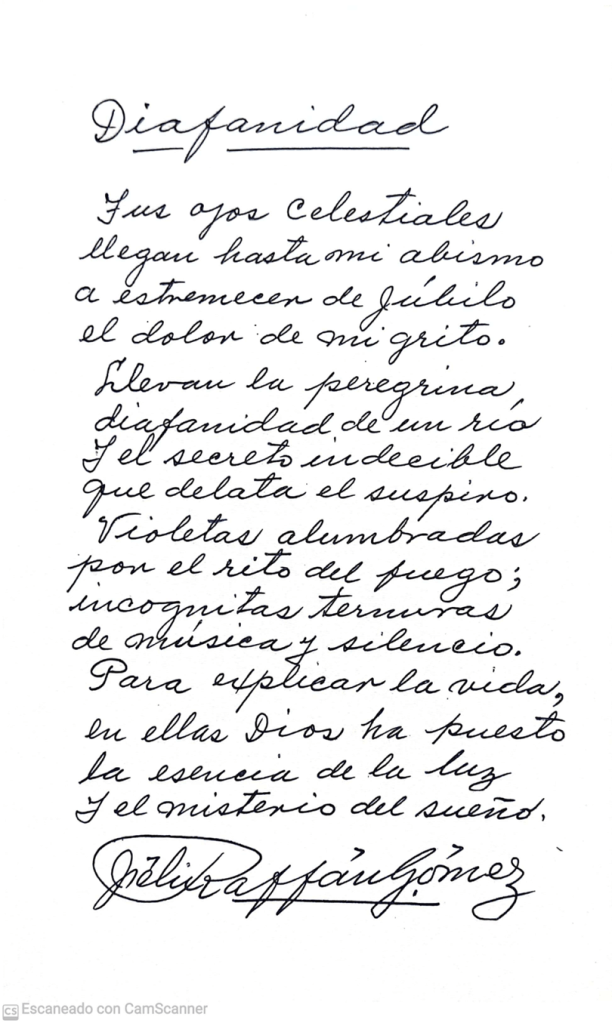 Diafanidad
Tus ojos celestiales
llegan hasta mi abismo
a estremecer de júbilo
el dolor de mi grito.
Llevan la peregrina
diafanidad de un río
Y el secreto indecible
que delata el suspiro.
Violetas alumbradas
por el rito del fuego;
incognitas ternuras
de música y silencio.
Para explicar la vida,
en ellas Dios ha puesto
la esencia de la luz
Y el misterio del sueño.
Félix Raffán Gómez
CS Escaneado con CamScanner